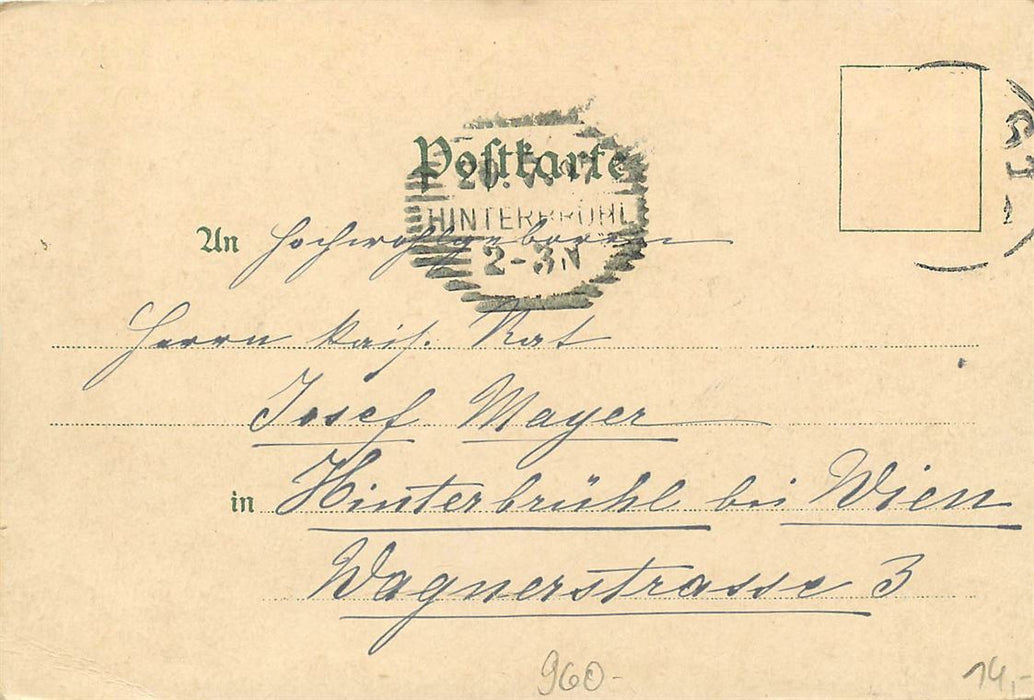 Postkarte
HINTERBRÜHL
2-3N
An Hochwohlgeboren
Herrn kais. Rat
Josef Mayer
in Hinterbrühl bei Wien
Wagnerstrasse 3
960.-
14,-